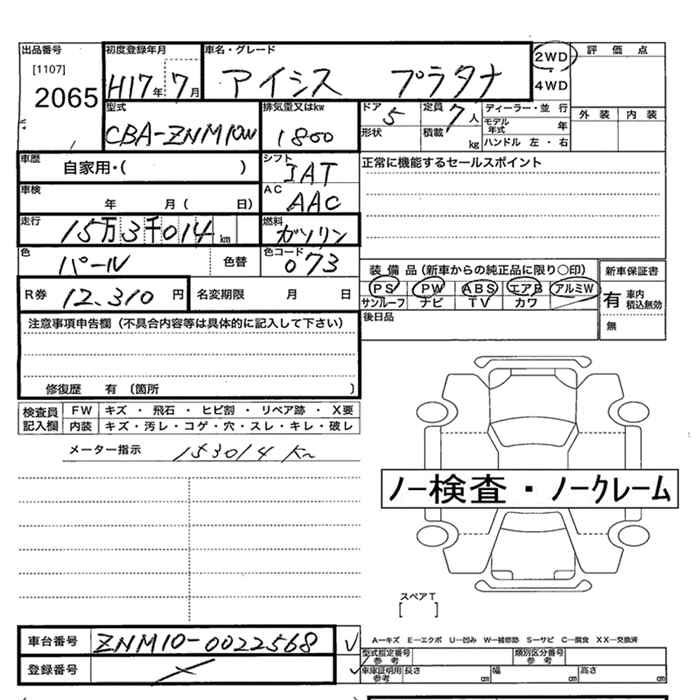 出品番号 初度登録年月 車名・グレード 2WD 評価点
[1107] 2065 H17年 7月 アイシス プラタナ 4WD
型式 排気量又はkw ドア 5 定員 7人 ディーラー・並 行 外装 内装
CBA-ZNM10W 1800 形状 積載 kg モデル年式 年
ハンドル 左・右
車歴 自家用・( ) シフト IAT 正常に機能するセールスポイント
車検 年 月 ( 日) AC AAC
走行 15万3千014km 燃料 ガソリン
色 パール 色替 色コード 073 装備品(新車からの純正品に限り○印) 新車保証書
R券 12.310円 名変期限 月 日 PS PW ABS エアB アルミW 有 車内積込無効
サンルーフ ナビ TV カワ 無
注意事項申告欄(不具合内容等は具体的に記入して下さい) 後日品
修復歴 有 〔箇所 〕
検査員記入欄 FW キズ・飛石・ヒビ割・リペア跡・X要
内装 キズ・汚レ・コゲ・穴・スレ・キレ・破レ
メーター指示 153014 Km
ノー検査・ノークレーム
スペアT
[ ]
車台番号 ZNM10-0022568
A—キズ E—エクボ U—凹み W—補修跡 S—サビ C—腐食 XX—交換済
登録番号
型式指定番号 参考 類別区分番号 参考
車庫証明用参考 長さ cm 幅 cm 高さ cm